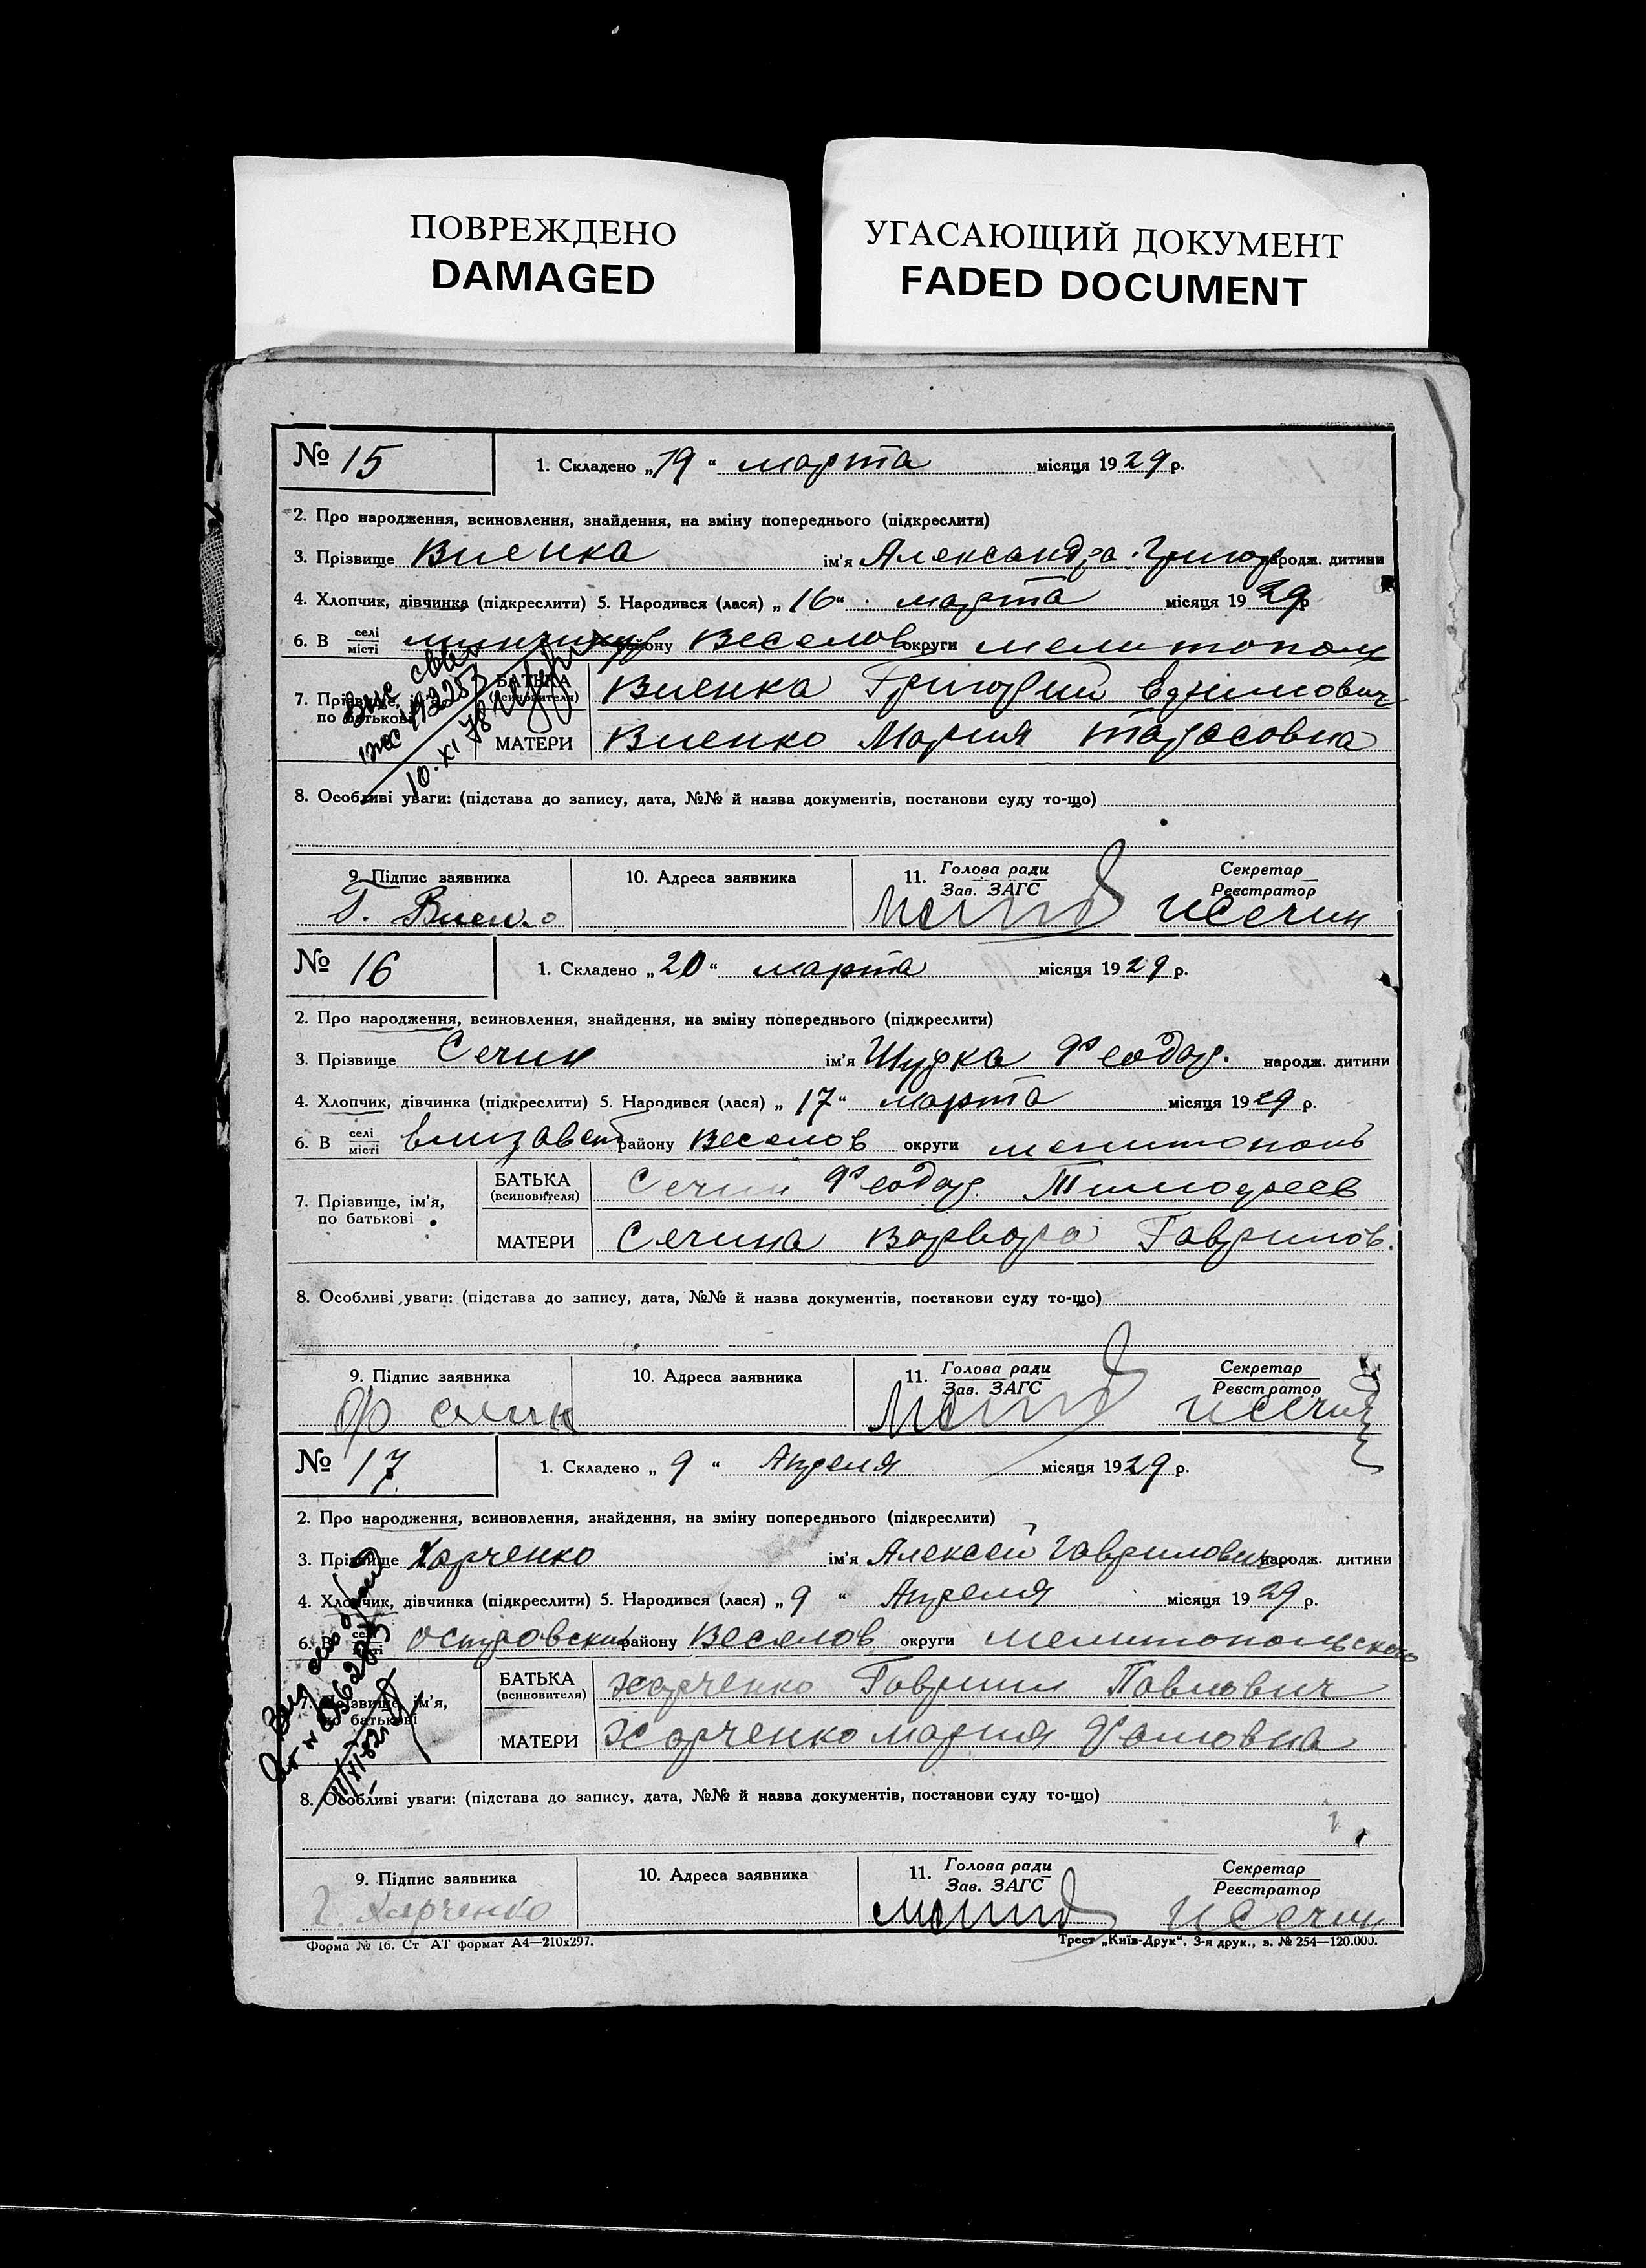 ПОВРЕЖДЕНО
DAMAGED
УГАСАЮЩИЙ ДОКУМЕНТ
FADED DOCUMENT
№ 15
1. Складено „19“ марта місяця 1929 р.
2. Про народження, всиновлення, знайдення, на зміну попереднього (підкреслити)
3. Прізвище Виенка ім'я Александра Григор народж. дитини
4. Хлопчик, дівчинка (підкреслити) 5. Народився (лася) „16“ марта місяця 1929 р
6. В селі місті району Веселов округи мелитополь
7. Прізвище, ім'я, по батькові
БАТЬКА (всиновителя) Виенка Григорий Ефимович
МАТЕРИ Виенко Мария Тарасовна
10.XI 78
8. Особливі уваги: (підстава до запису, дата, №№ й назва документів, постанови суду то-що)
9. Підпис заявника 10. Адреса заявника 11. Голова ради Зав. ЗАГС Секретар Реєстратор
Г. Виенко ИСечин
№ 16
1. Складено „20“ марта місяця 1929 р.
2. Про народження, всиновлення, знайдення, на зміну попереднього (підкреслити)
3. Прізвище Сечин ім'я Шурка Феодор. народж. дитини
4. Хлопчик, дівчинка (підкреслити) 5. Народився (лася) „17“ марта місяця 1929 р.
6. В селі місті Елизавет району Веселов округи мелитополь
7. Прізвище, ім'я, по батькові
БАТЬКА (всиновителя) Сечин Феодор. Тимофеев
МАТЕРИ Сечина Варвара Гаврилов.
8. Особливі уваги: (підстава до запису, дата, №№ й назва документів, постанови суду то-що)
9. Підпис заявника 10. Адреса заявника 11. Голова ради Зав. ЗАГС Секретар Реєстратор
Ф Сечин ИСечин
№ 17
1. Складено „9“ Апреля місяця 1929 р.
2. Про народження, всиновлення, знайдення, на зміну попереднього (підкреслити)
3. Прізвище Харченко ім'я Алексей Гаврилович народж. дитини
4. Хлопчик, дівчинка (підкреслити) 5. Народився (лася) „9“ Апреля місяця 1929 р.
6. В селі місті Островский району Веселов округи Мелитопольского
7. Прізвище, ім'я, по батькові
БАТЬКА (всиновителя) Харченко Гавриил Павлович
МАТЕРИ Харченко Мария Фомовна
8. Особливі уваги: (підстава до запису, дата, №№ й назва документів, постанови суду то-що)
9. Підпис заявника 10. Адреса заявника 11. Голова ради Зав. ЗАГС Секретар Реєстратор
Г. Харченко ИСечин
Форма № 16. Ст АТ формат А4—210х297.
Трест „Київ-Друк“. 3-я друк., з. № 254—120.000.